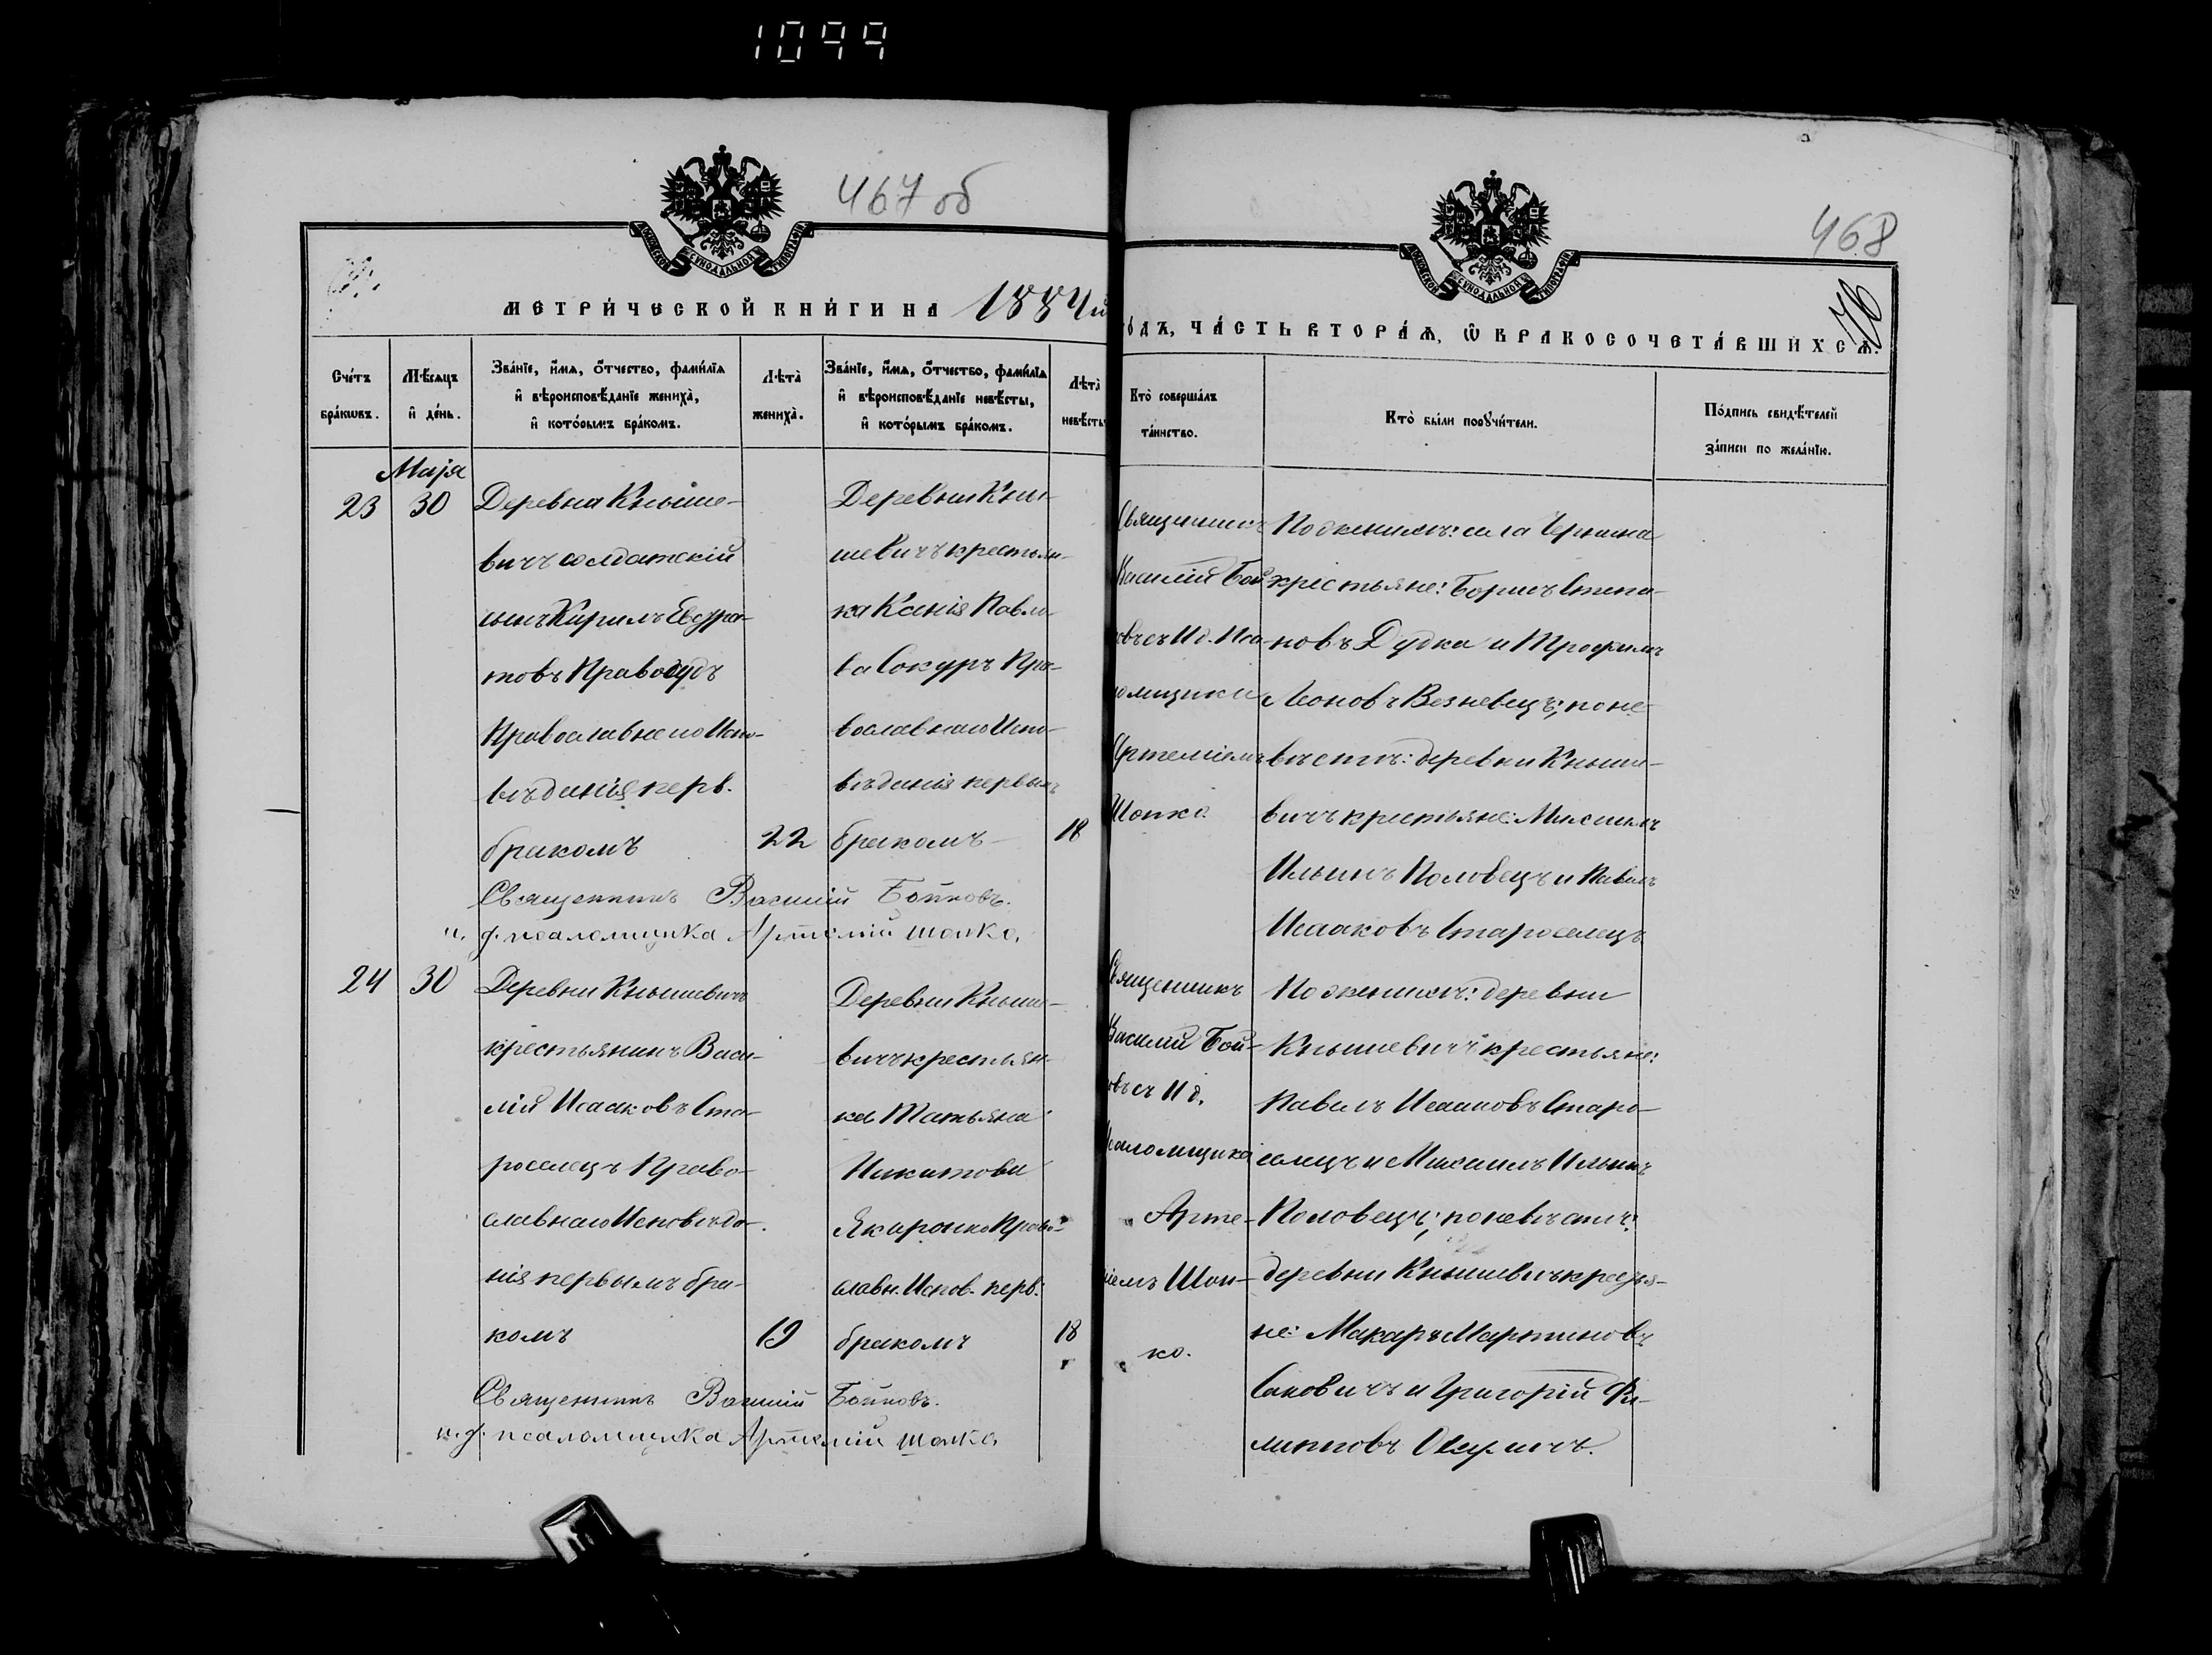 1099
467 об
468
76
МОСКОВСКОЙ СѴНОДАЛЬНОЙ ТИПОГРАФІИ
МОСКОВСКОЙ СѴНОДАЛЬНОЙ ТИПОГРАФІИ
МЕТРИ́ЧЕСКОЙ КНИ́ГИ НА 1884 й
го́дъ, ЧА́СТЬ ВТОРА́Я, Ѡ БРАКОСОЧЕТА́ВШИХСЯ.
Сче́тъ бра́кωвъ.
Мѣ́сяцъ и де́нь.
Зва́нїе, и́мя, о́тчество, фами́лїя
и вѣроисповѣ́данїе жениха̀,
и кото́рымъ бра́комъ.
Лѣта̀ жениха̀.
Зва́нїе, и́мя, о́тчество, фами́лїя
и вѣроисповѣ́данїе невѣ́сты,
и кото́рымъ бра́комъ.
Лѣта̀ невѣ́сты
Кто̀ соверша́лъ та́инство.
Кто̀ бы́ли порꙋчи́тели.
По́дпись свидѣ́телей
за́писи по жела́нїю.
Маія
23
30
Деревни Кныше-
вичъ солдатскій
сынъ Кирилъ Евстра-
товъ Правосудъ
Православнаго Испо-
вѣданія перв.
бракомъ
22
Деревни Кны-
шевичъ крестьян-
ка Ксенія Павло-
ва Сокуръ Пра-
вославнаго Испо-
вѣданія первымъ
бракомъ
18
Священникъ
Василій Бой-
ковъ съ И д. Пса-
ломщика
Артеміемъ
Шопко
По женихѣ: села Чернина
крестьяне: Борисъ Степа-
новъ Дудка и Трофимъ
Леоновъ Везневецъ; по не-
вѣстѣ: деревни Кныше-
вичъ крестьяне: Михаилъ
Ильинъ Половецъ и Павелъ
Исааковъ Староселецъ
Священникъ Василій Бойковъ.
и. д. псаломщика Артемій Шопко.
24
30
Деревни Кнышевичъ
крестьянинъ Васи-
лій Исааковъ Ста-
роселецъ Право-
славнаго Исповѣда-
нія первымъ бра-
комъ
19
Деревни Кныше-
вичъ крестьян-
ка Татьяна
Никитова
Православн. Испов. перв.
бракомъ
18
Священникъ
Василій Бой-
ковъ съ И д.
Псаломщика
Арте-
міемъ Шоп-
ко.
По женихѣ: деревни
Кнышевичъ крестьяне:
Павелъ Исааковъ Старо-
селецъ и Михаилъ Ильинъ
Половецъ; по невѣстѣ:
деревни Кнышевичъ крестья-
не: Макаръ Мартиновъ
Саковичъ и Григорій Фи-
липповъ
Священникъ Василій Бойковъ.
и. д. псаломщика Артемій Шопко.